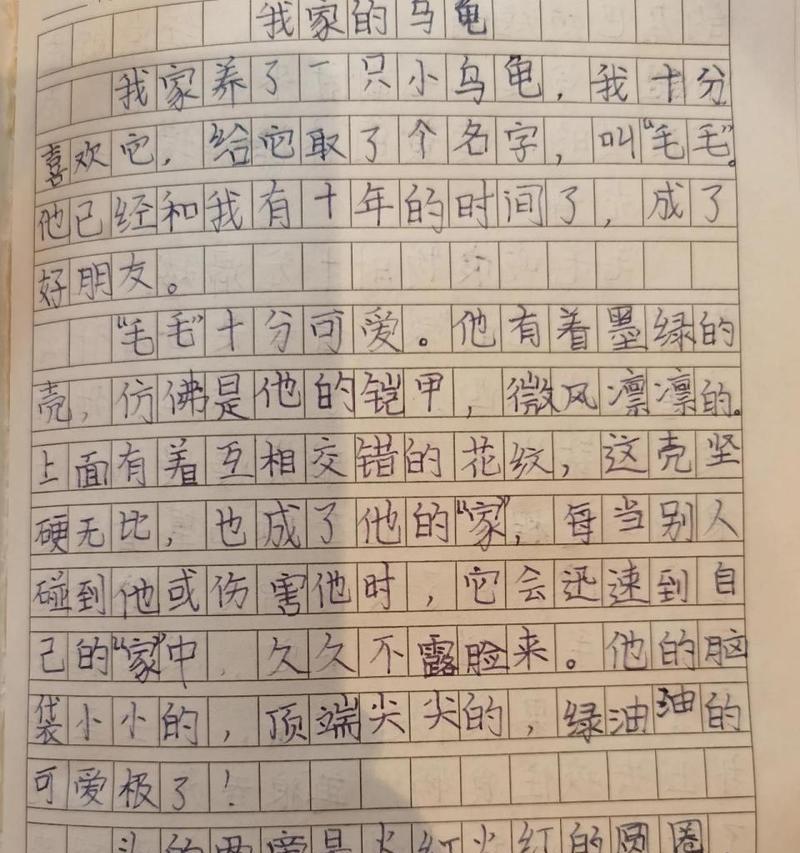 我家的乌龟
我家养了一只小乌龟，我十分
喜欢它，给它取了个名字，叫“毛毛”。
他已经和我有十年的时间了，成了
好朋友。
“毛毛”十分可爱。他有着墨绿的
壳，仿佛是他的铠甲，微风凛凛的。
上面有着互相交错的花纹，这壳坚
硬无比，也成了他的“家”，每当别人
碰到他或伤害他时，它会迅速到自
己的“家”中，久久不露脸来。他的脑
袋小小的，顶端尖尖的，绿油油的
可爱极了！
头的两旁是火红火红的圆圈